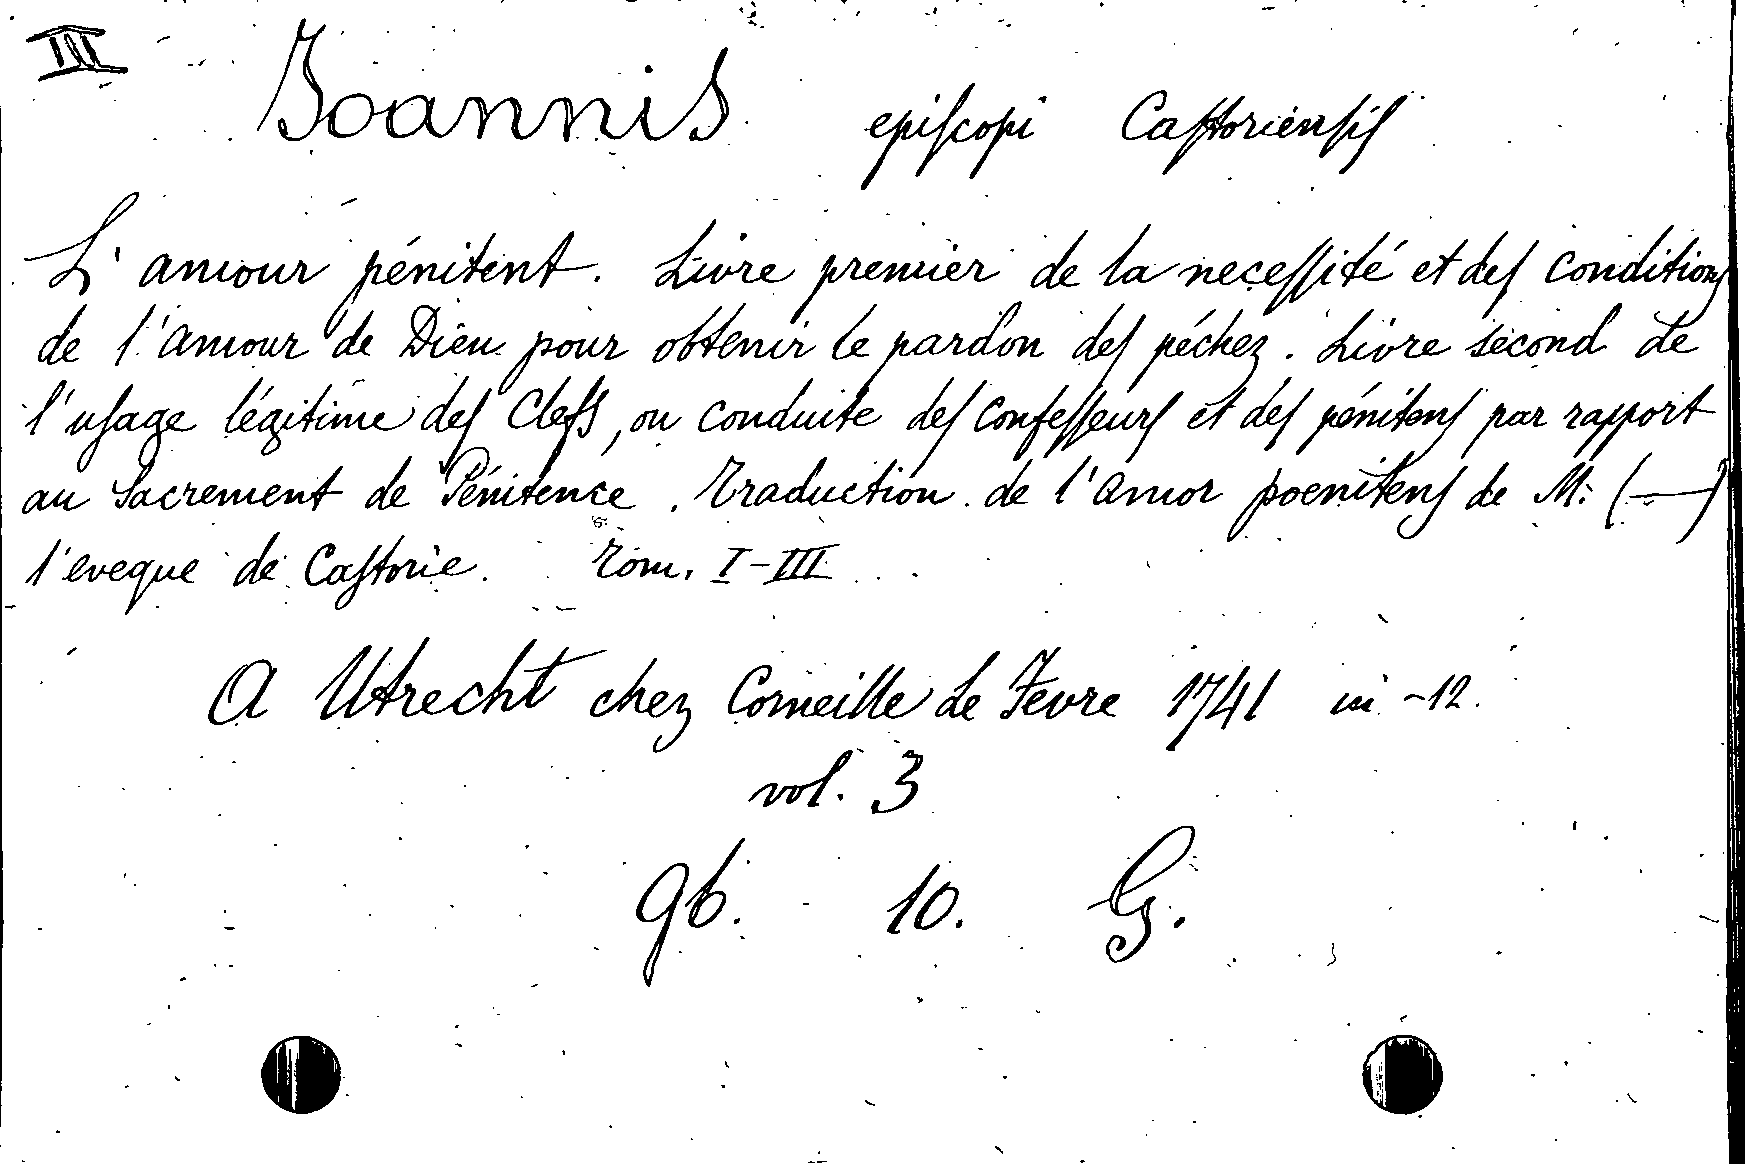 III
Joannis episcopi Castoriensis
L'amour pénitent. Livre premier de la necessité et des conditions
de l'amour de Dieu pour obtenir le pardon des péchez. Livre second de
l'usage légitime des Clefs, ou conduite des confesseurs et des pénitens par rapport
au Sacrement de Pénitence. Traduction de l'amor poenitens de M: (—)
l'eveque de Castorie. Tom. I-III
A Utrecht chez Corneille Le Fevre 1741 in-12.
vol. 3
96. 10. G.